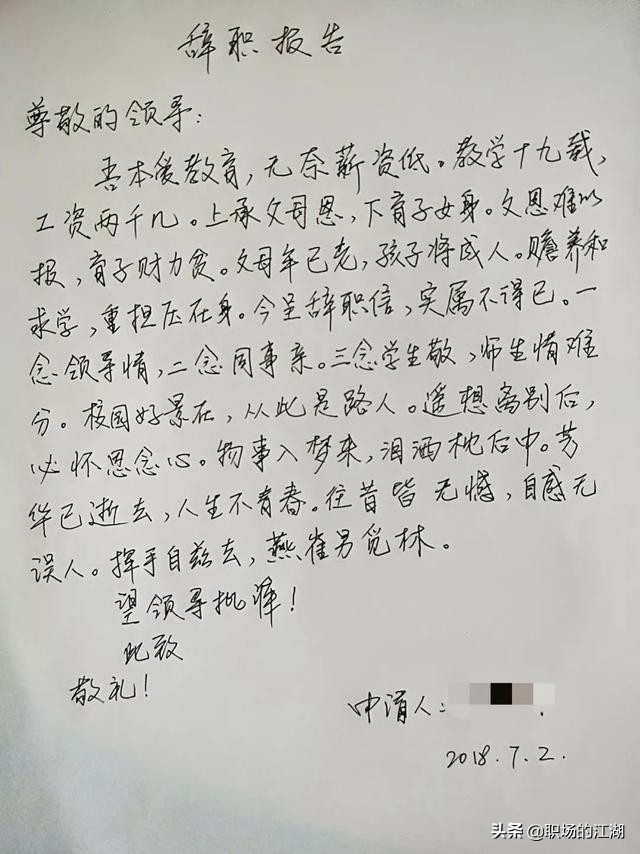 辞职报告
尊敬的领导:
吾本爱教育,无奈薪资低。教学十九载,
工资两千几。上承父母恩,下育子女身。父恩难以
报,育子财力贫。父母年已老,孩子将成人。赡养和
求学,重担压在身。今呈辞职信,实属不得已。一
念领导情,二念同事亲。三念学生敬,师生情难
分。校园好景在,从此是路人。遥想离别后,
必怀思念心。物事入梦来,泪洒枕后中。芳
华已逝去,人生不青春。往昔皆无憾,自感无
误人。挥手自兹去,燕雀另觅林。
望领导批准!
此致
敬礼!
申请人:
2018.7.2.
头条 @职场的江湖